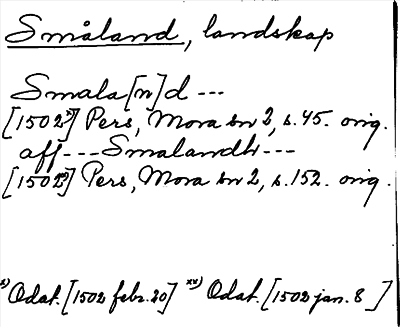 Småland, landskap
Smala[n]d ---
[1502x)] Pers, Mora sn 2, s. 45. orig.
aff --- Smalandh ---
[1502xx)] Pers, Mora sn 2, s. 152. orig.
x) Odat. [1502 febr. 20] xx) Odat. [1502 jan. 8]